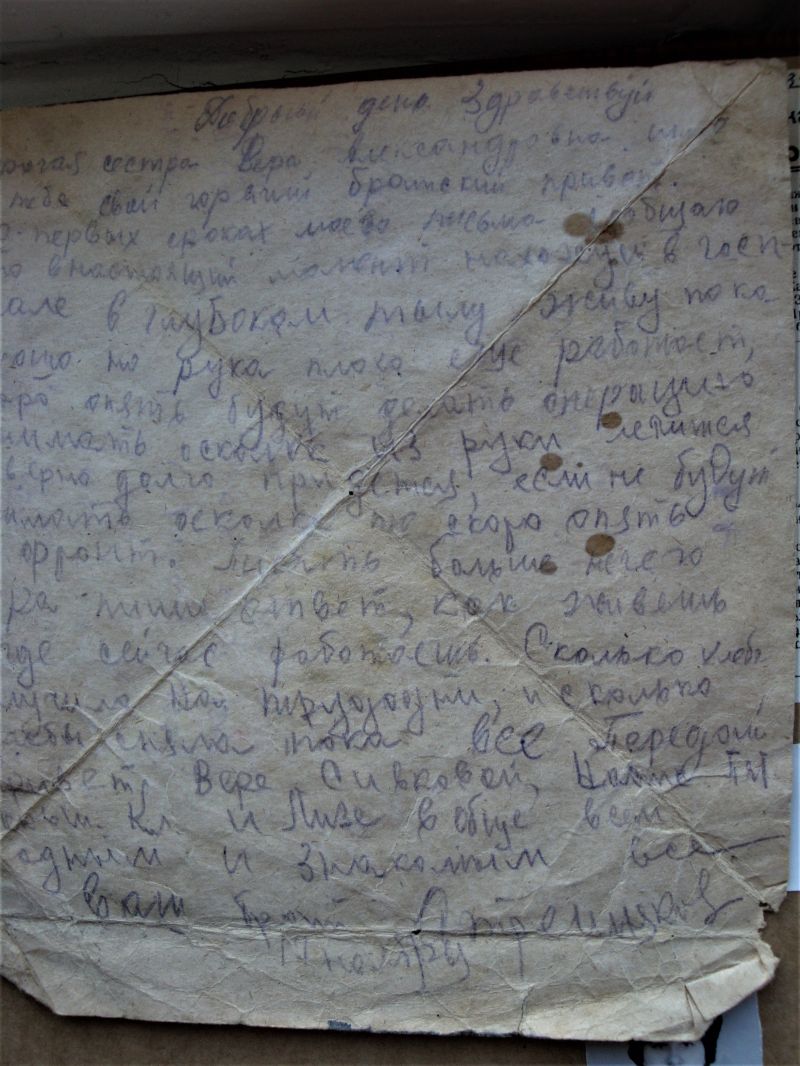 Добрый день Здравствуй
рогая сестра Вера Александровна. шлю
тебе свой горячий братский привет.
первых сроках моево письма сообщаю
то внастоящий момент нахожусь в госп-
але в глубоком тылу живу пока
рошо но рука плохо еще работает,
оро опять будут делать операцию
нимать осколки из руки лечится
верно долго придется, если не будут
имать осколки то скоро опять
фронт. Писать больше нечего
ра пиши ответ, как живешь
где сейчас работаешь. Сколько хлеба
лучила на трудодни, и сколько
сняла пока все Передай
ривет, Вере Сивковой,
и Лизе вобще всем
одным и знакомым все
Ваш брат
ноября